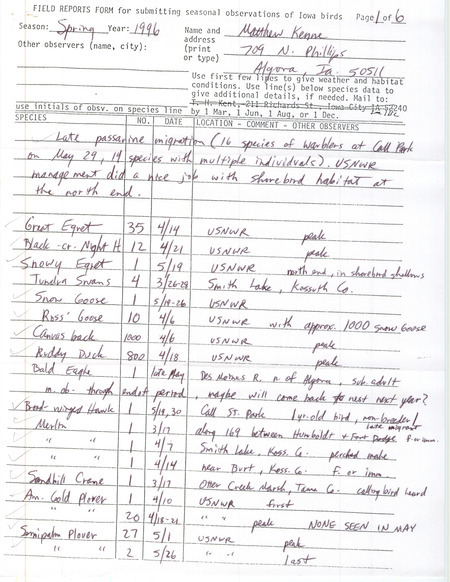 FIELD REPORTS FORM for submitting seasonal observations of Iowa birds Page 1 of 6
Season: Spring Year: 1996 Name and Matthew Kenne
address 709 N. Phillips
Other observers (name, city): (print
or type) Algona, Ia. 50511
Use first few lines to give weather and habitat
conditions. Use line(s) below species data to
give additional details, if needed. Mail to:
T. H. Kent, 211 Richards St., Iowa City IA 52240
use initials of obsv. on species line by 1 Mar, 1 Jun, 1 Aug, or 1 Dec.
SPECIES NO. DATE LOCATION - COMMENT - OTHER OBSERVERS
Late passerine migration (16 species of warblers at Call Park
on May 29, 14 species with multiple individuals). USNWR
management did a nice job with shorebird habitat at
the north end.
Great Egret 35 4/14 USNWR peak
Black-cr. Night H 12 4/21 USNWR peak
Snowy Egret 1 5/19 USNWR north end, in shorebird shallows
Tundra Swans 4 3/26-28 Smith Lake, Kossuth Co.
Snow Goose 1 5/19-26 USNWR
Ross' Goose 10 4/6 USNWR with approx. 1000 Snow Goose
Canvasback 1000 4/6 USNWR peak
Ruddy Duck 800 4/18 USNWR peak
Bald Eagle 1 late May Des Moines R. n. of Algona, sub. adult
m. ob. through end of period, maybe will come back to nest next year?
Broad-winged Hawk 1 5/19, 30 Call St. Park 1 yr. old bird, non-breeder/
late migrant
Merlin 1 3/17 along 169 between Humboldt & Fort Dodge F. or imm.
" " 1 4/7 Smith Lake, Koss. Co. perched male
" " 1 4/14 near Burt, Koss. Co. F. or imm.
Sandhill Crane 1 3/17 Otter Creek Marsh, Tama Co. calling bird heard
Am. Gold. Plover 1 4/10 USNWR first
" " 20 4/18-21 " " peak NONE SEEN IN MAY
Semipalm. Plover 27 5/1 USNWR peak
" " 2 5/26 " " last